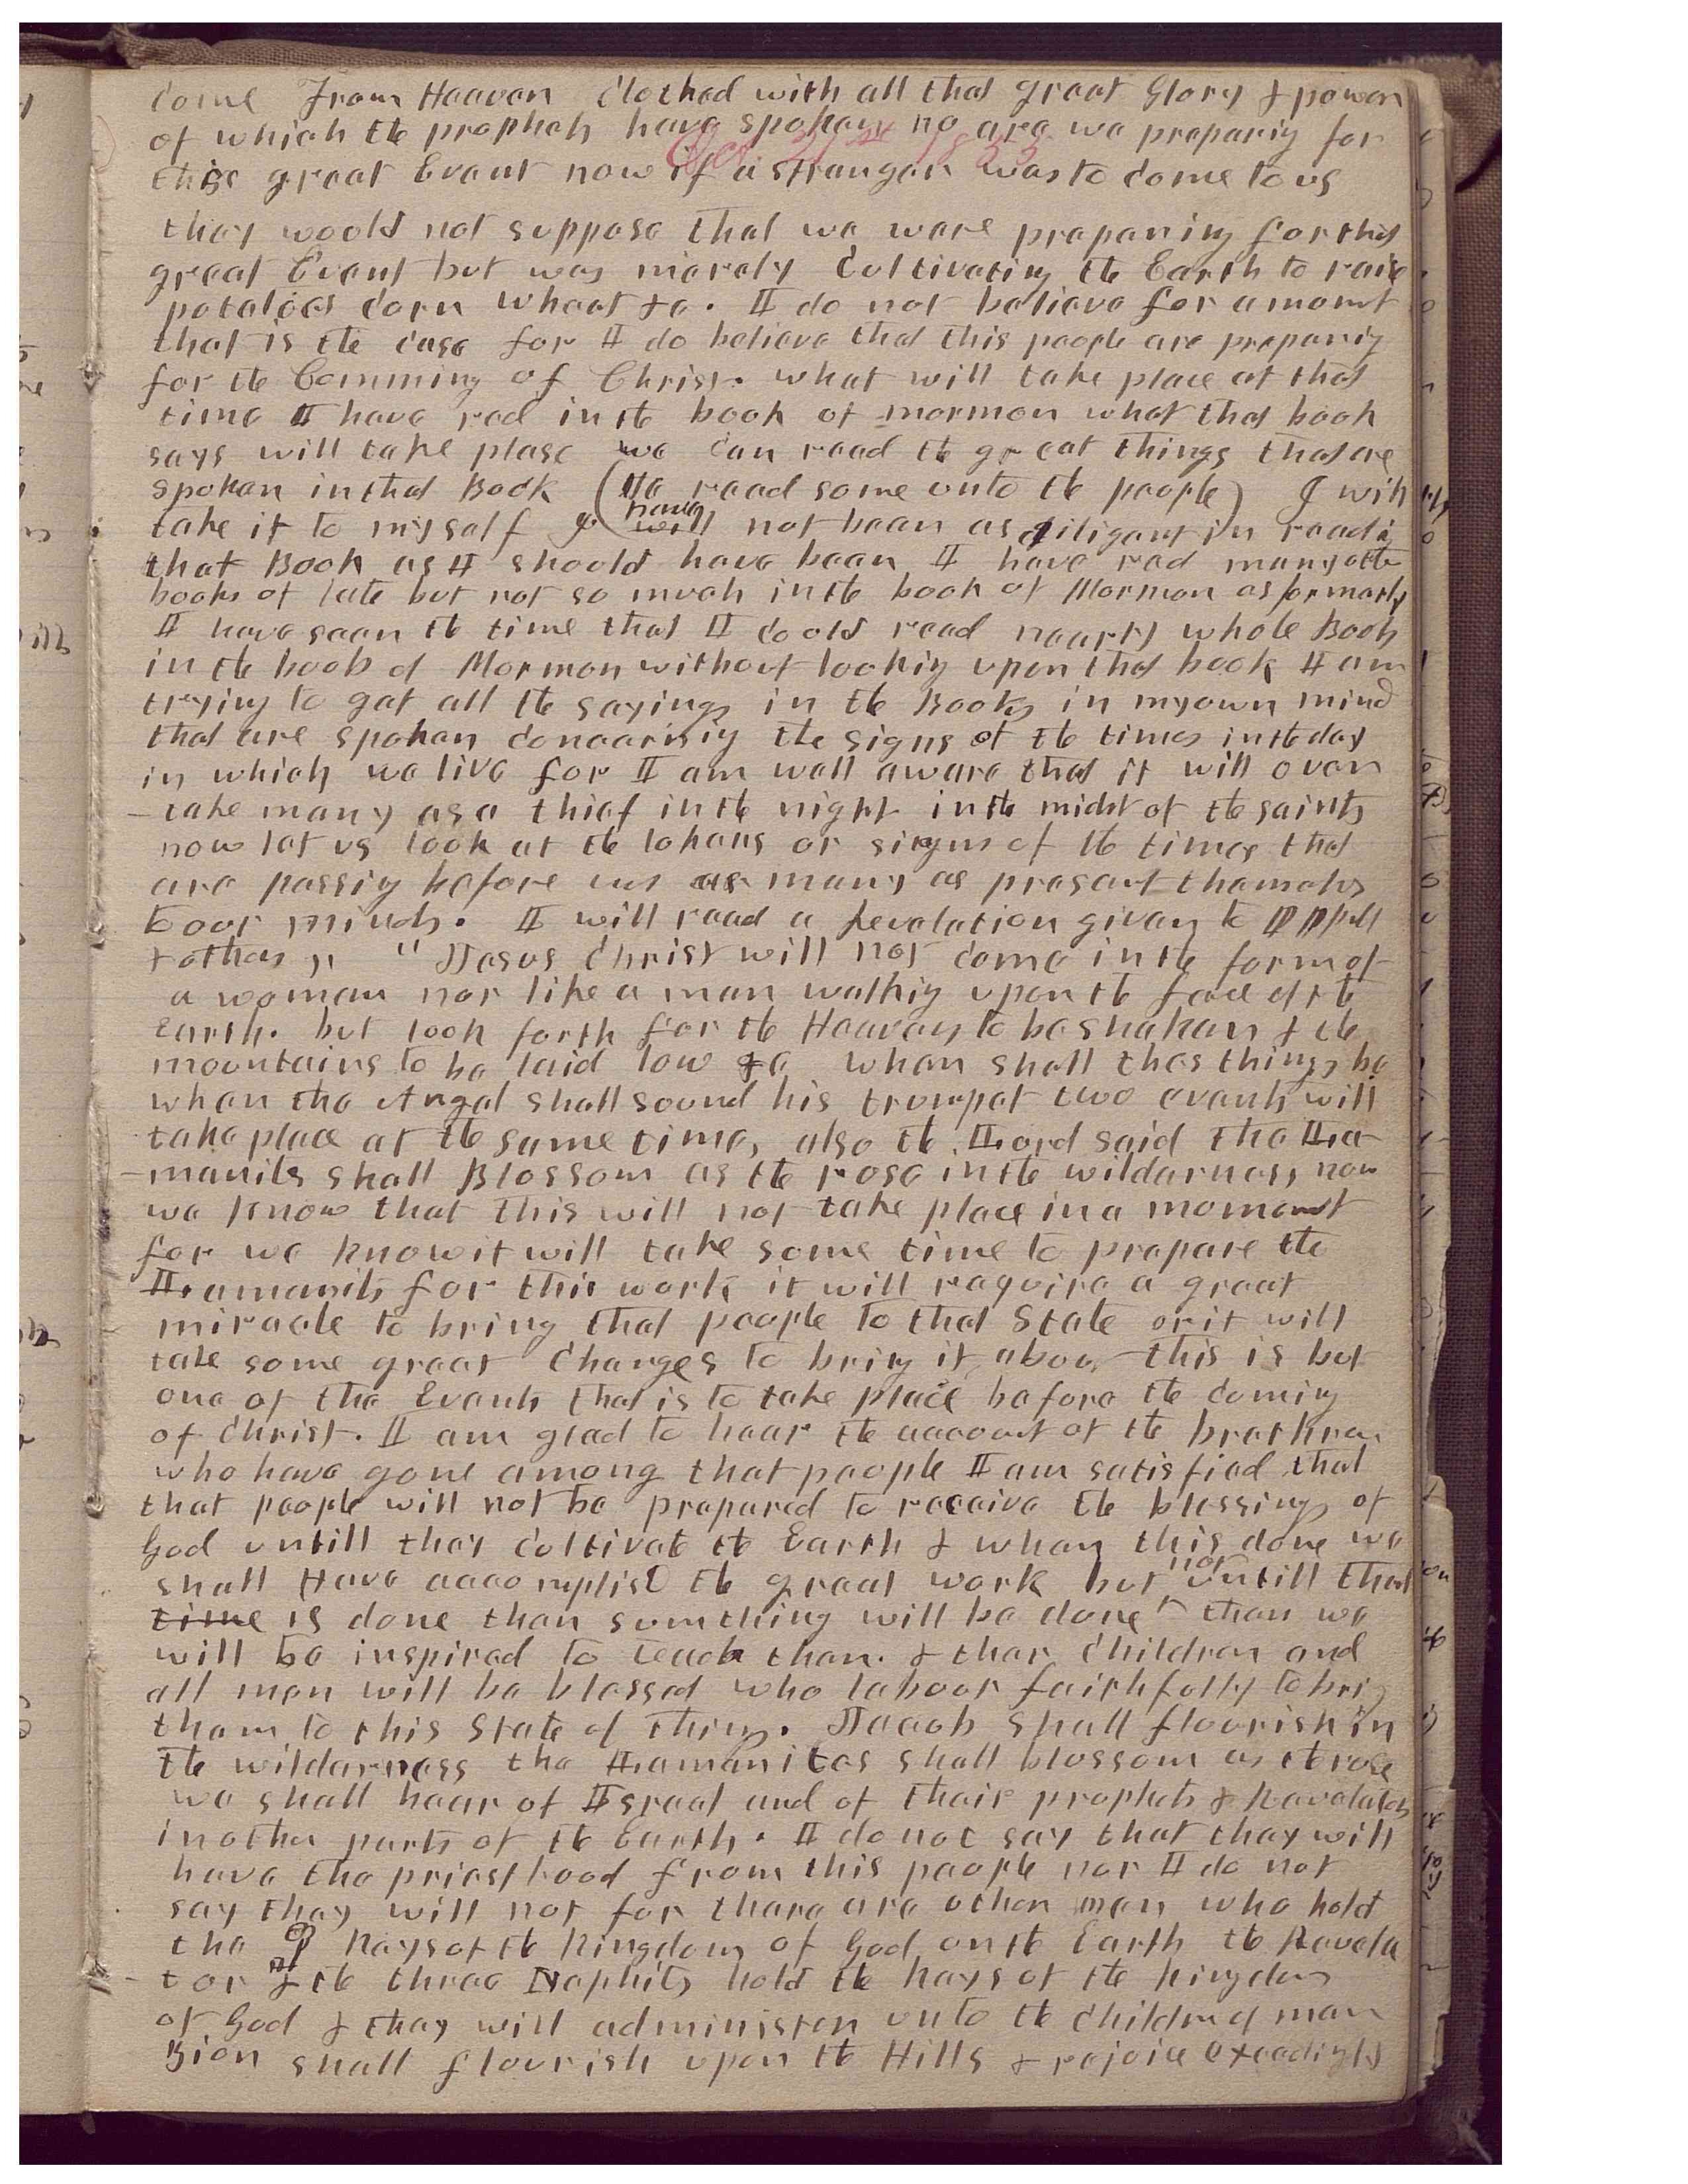 come From Heaven clothed with all that great Glory & power
of which the prophets have spoken no are we preparig for
Oct 21st 1855
this great Event now if a stranger was to come to us
they woold not suppose that we ware preparing for that
great Event but was merely Cultivating the Earth to raise
potatoes corn wheat &c. I do not believe for a momt
that is the case for I do believe that this people are preparig
for the Comming of Christ. what will take place at that
time I have red in the book of mormon what that book
says will take plase we can read the great things that are
spoken in that Book (He read some unto the people) I will
take it to myself I have will not been as diligent in readig
that Book as I should have been I have read many other
books of late but not so much in the book of Mormon as formerly
I have seen the time that I coold read nearly whole Books
in the book of Mormon without lookig upon that book I am
trying to get all the sayings in the Books in my own mind
that are spoken concernig the signs of the times in the day
in which we live for I am well aware that it will over
-take many as a thief in the night in the midst of the saints
now let us look at the tokens or signs of the times that
are passig before us as many as presant themselvs
to our minds. I will read a Revelation given to P P Pratt
& others " "Jesus Christ will not come in the form of
a woman nor like a man walkig upon the face of the
Earth. but look forth for the Heavens to be shaken & the
mountains to be laid low &c when shall thes things be
when the Angel shall sound his trumpet two events will
take place at the same time, also the Lord said the La-
-manits shall Blossom as the rose in the wilderness, now
we know that this will not take place in a moment
for we know it will take some time to prepare the
Lamanits for this work it will require a great
miracle to bring that people to that State or it will
take some great Changes to brig it about this is but
one of the Events that is to take place before the coming
of Christ. I am glad to hear the account of the brethren
who have gone among that people I am satisfied that
that people will not be prepared to receive the blessings of
God untill they cultivate the Earth & when this done we
shall Have accomplisd the great work but not untill that
time is done then sumthing will be done then we
will be inspired to teach them. & ther Children and
all men will be blessed who labour faithfully to brig
them to this State of Things. Jacob shall flourish in
the wilderness the Lamanites shall blossom as the rose
we shall hear of Israel and of their prophets & Revelators
in other parts of the Earth. I do not say that they will
have the priesthood from this people nor I do not
say they will not for there are other men who hold
the keys of the kingdom of God on the Earth the Revela
-tor & the three Nephits hold the keys of the kingdom
of God & they will administer unto the Childrn of men
Zion shall flourish upon the Hills & rejoice exceedingly